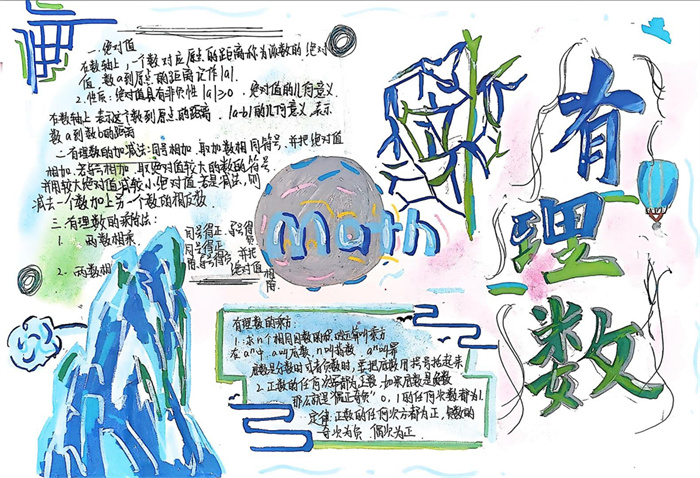 一.绝对值
在数轴上,一个数对应原点的距离称为该数的绝对
值.数a到原点的距离记作|a|.
2.性质:绝对值具有非负性|a|≥0.绝对值的几何意义
在数轴上表示这个数到原点的距离.|a-b|的几何意义表示
数a到数b的距离
二.有理数的加减法:同号相加,取加数相同符号,并把绝对值
相加.若异号相加,取绝对值较大的数的符号
并用较大绝对值减较小绝对值.若是减法,则
减去一个数加上另一个数的相反数.
三.有理数的乘除法:
1. 两数相乘. 同号得正,异号得
2. 两数相 同号得正 并把
绝对值相
Math
有理数
有理数的乘方:
1.求n个相同因数的积的运算叫乘方
在aⁿ中,a叫底数,n叫指数,aⁿ叫幂
底数是分数时或者负数时,要把底数用括号括起来
2.正数的任何次幂都为正数,如果底数是负数
那么就是"偶正奇负"0.1的任何次数都为1.
定律:正数的任何次方都为正,负数的
奇次为负,偶次为正.